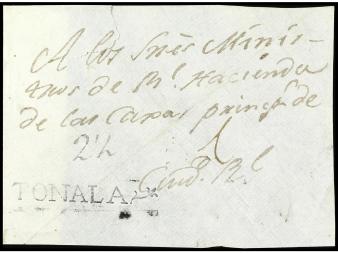 A los Sres Minis-
tros de Rl. Hacienda
de las Caxas princs. de
24
Ciud. Rl
TONALA